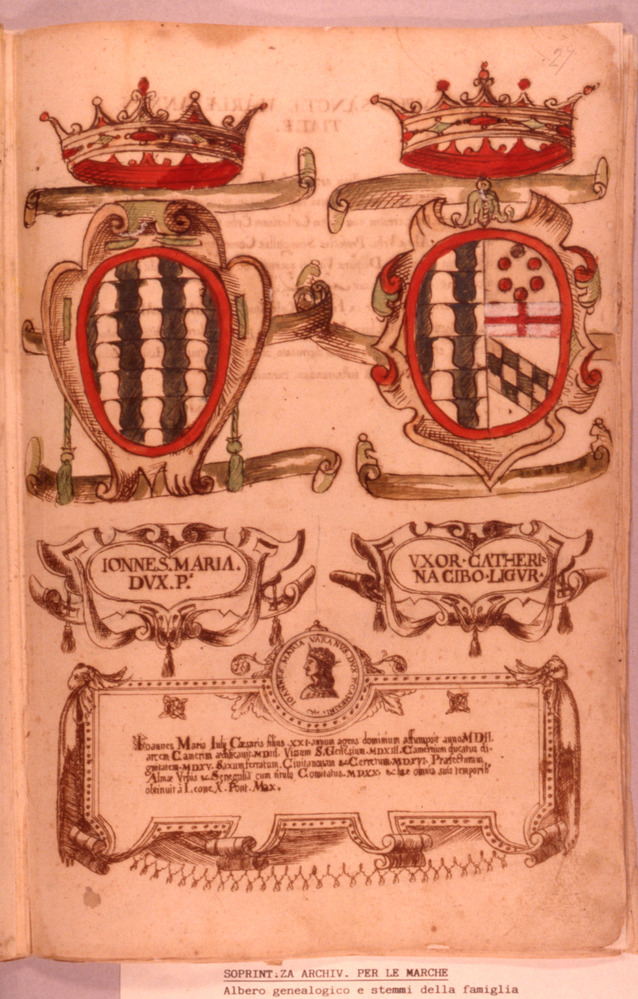 27
IONNES.MARIA.
DVX.P.
VXOR·CATHERI-
NA CIBO·LIGVR·
IOANNES MARIA VARANVS DVX
Ioannes Maria Iulij Cæsaris filius .XXI. annum agens dominium assumpsit anno MDIII.
arcem Camerin MDIIII. Vissum S. Genesium .MDXIII. Camerinum ducatus di-
gnitatem .MDXV. Saxumferratum, Civitanovam &c Cerretum MDXVI. Præfecturam
Almæ Vrbis &c Senegaliæ cum titulo Comitatus .MDXX. &c hæc omnia suis temporib
obtinuit à Leone X. Pont. Max.
SOPRINT.ZA ARCHIV. PER LE MARCHE
Albero genealogico e stemmi della famiglia